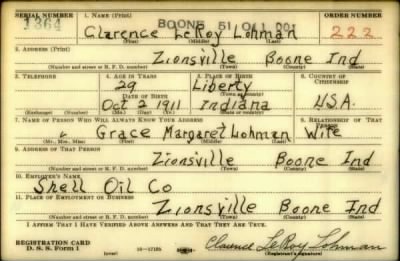 SERIAL NUMBER 1. NAME (Print) ORDER NUMBER
1364 BOONE 51 041 001
Clarence LeRoy Lohman 222
(First) (Middle) (Last)
2. ADDRESS (Print)
Zionsville Boone Ind
(Number and street or R. F. D. number) (Town) (County) (State)
3. TELEPHONE 4. AGE IN YEARS 5. PLACE OF BIRTH 6. COUNTRY OF CITIZENSHIP
29 Liberty
(Town or county)
DATE OF BIRTH
Oct 2 1911 Indiana U.S.A.
(Exchange) (Number) (Mo.) (Day) (Yr.) (State or country)
7. NAME OF PERSON WHO WILL ALWAYS KNOW YOUR ADDRESS 8. RELATIONSHIP OF THAT PERSON
Grace Margaret Lohman Wife
(Mr., Mrs., Miss) (First) (Middle) (Last)
9. ADDRESS OF THAT PERSON
Zionsville Boone Ind
(Number and street or R. F. D. number) (Town) (County) (State)
10. EMPLOYER'S NAME
Shell Oil Co
11. PLACE OF EMPLOYMENT OR BUSINESS
Zionsville Boone Ind
(Number and street or R. F. D. number) (Town) (County) (State)
I AFFIRM THAT I HAVE VERIFIED ABOVE ANSWERS AND THAT THEY ARE TRUE.
REGISTRATION CARD
D. S. S. Form 1 16—17105 Clarence LeRoy Lohman
(over) (Registrant's signature)